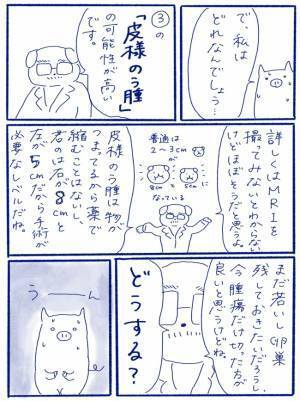 で、私は
どれなんでしょう…
③の
「皮様のう腫」
の可能性が高い
です。
詳しくはMRIを
撮ってみないとわからない
けどほぼそうだと思うよ。
普通は
2〜3cmが
8cm
5cm
になっている
皮様のう腫は物が
つまってるから薬で
縮むことはないし、
君のは右が8cmと
左が5cmだから手術が
必要なレベルだね。
まだ若いし卵巣
残しておきたいだろうし、
今腫瘍だけ切った方が
良いと思うけどね。
どうする？
うーーん